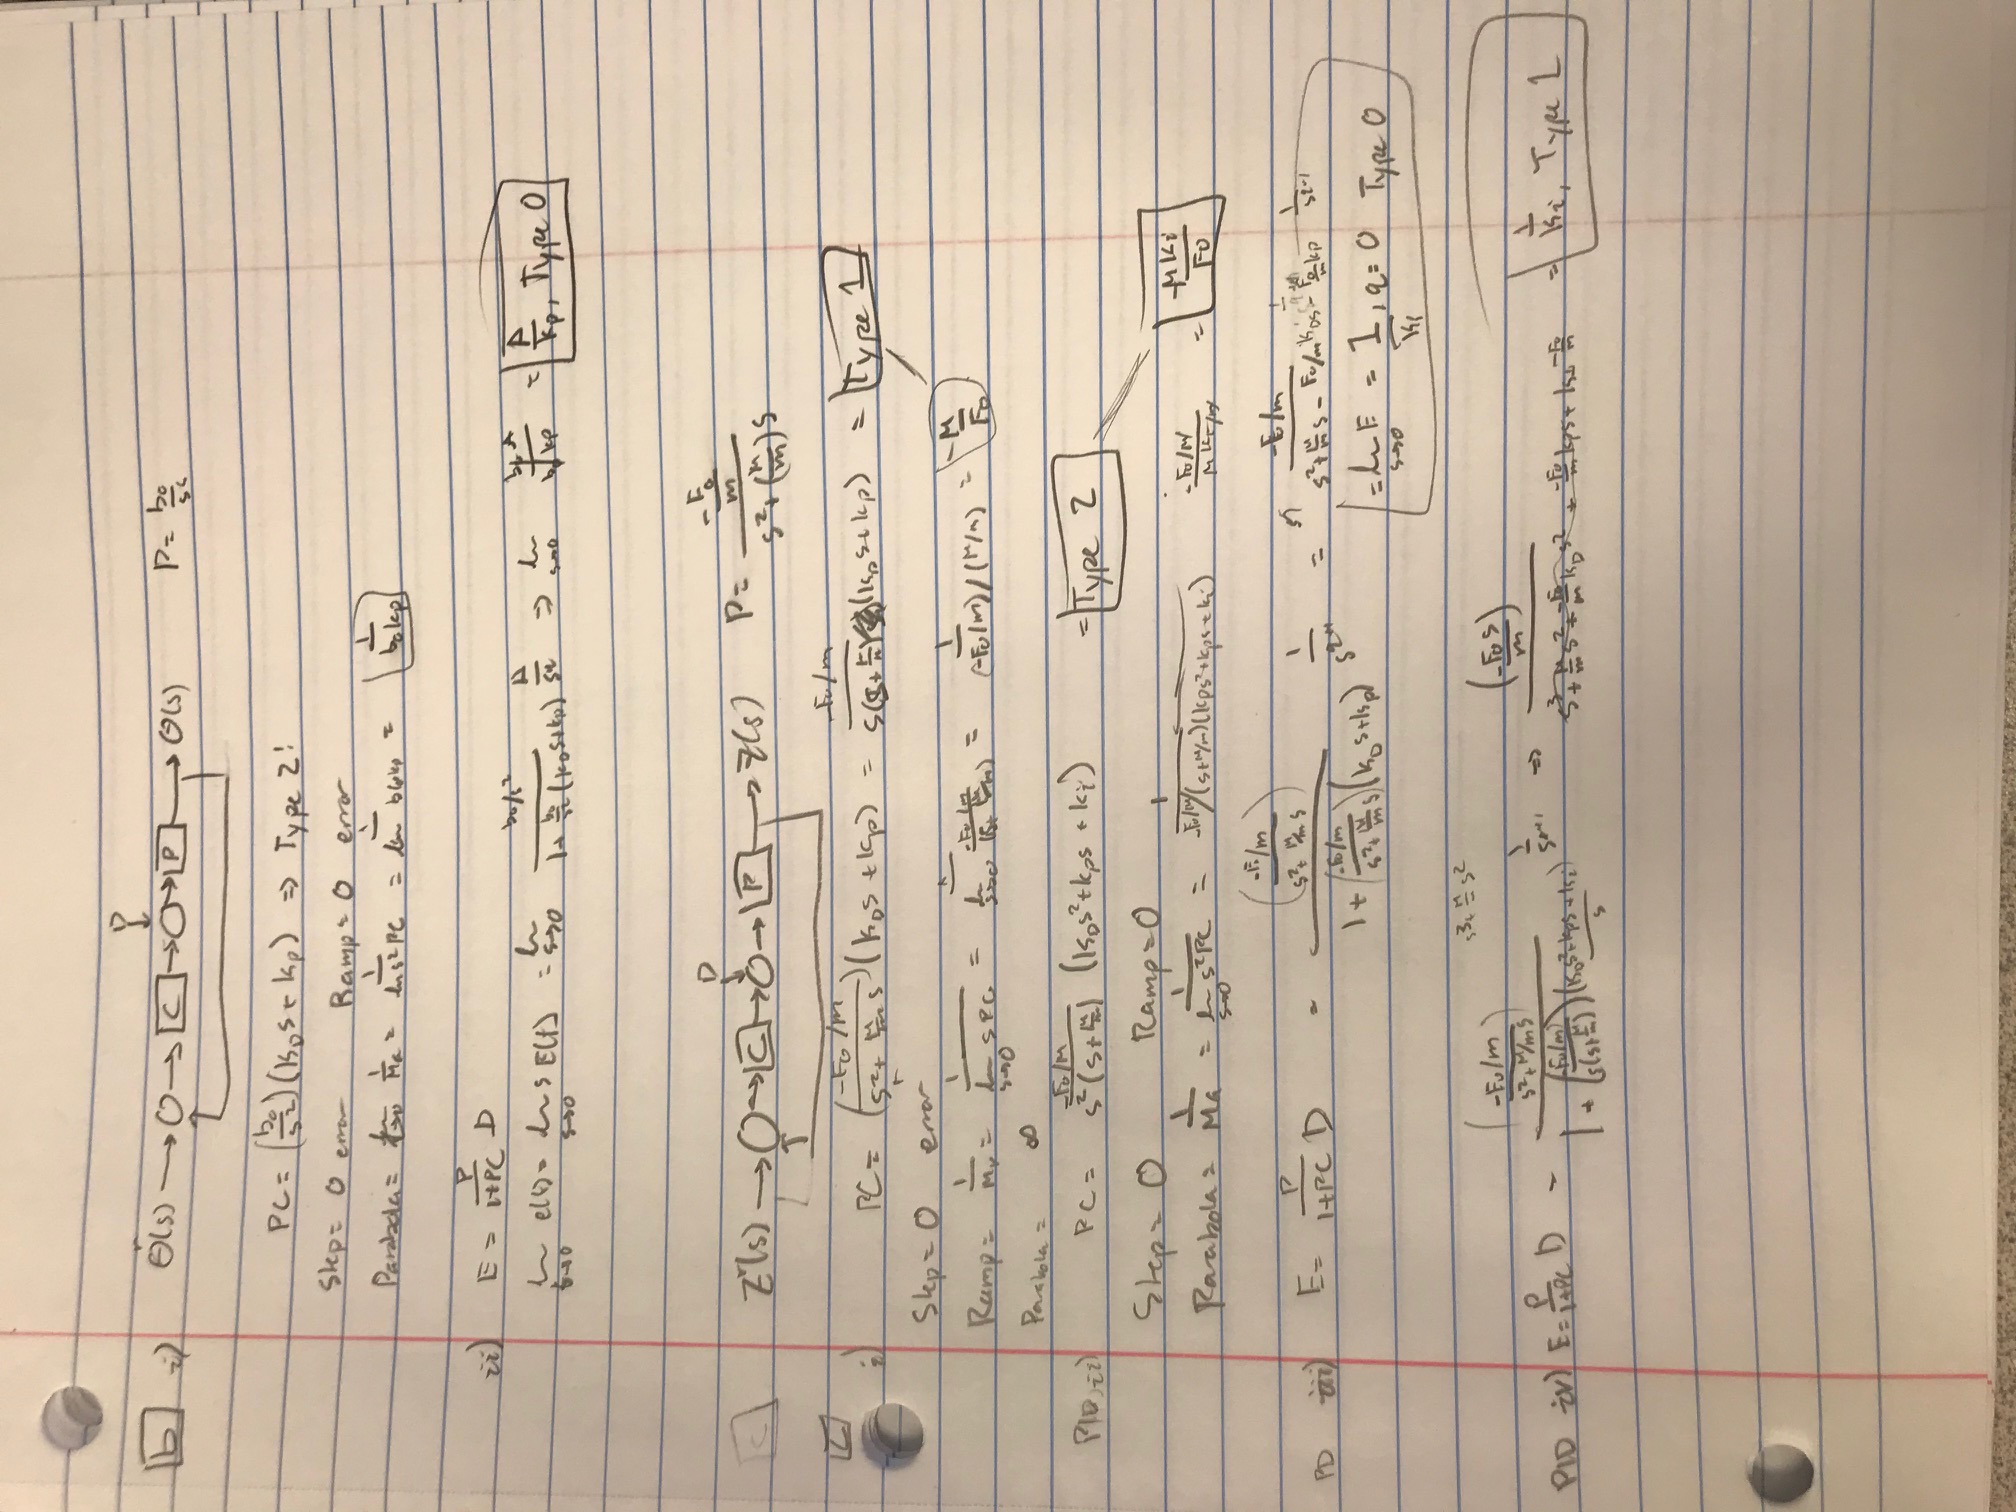 b i) Θʳ(s) → O → C → O → P → Θ(s) D P = b₀/s²
PC = (b₀/s²)(k_D s + k_p) ⇒ Type 2!
Step = 0 error Ramp = 0 error
Parabola = 1/Ma = 1/lim s²PC = 1/lim b₀kp = 1/(b₀kp)
ii) E = P/(1+PC) D
lim t→0 e(t) = lim s→0 s E(t) = lim s→0 (b₀/s²)/(1 + b₀/s² (k_D s + k_p)) A/s² ⇒ lim s→0 b₀A/b₀kp = A/kp, Type 0
D
C Zʳ(s) → O → C → O → P → Z(s) P = (-F₀/m)/(s² + (μ/m)s)
C
i) PC = ((-F₀/m)/(s² + μ/m s))(k_D s + k_p) = (-F₀/m)/(s(s + μ/m)) (k_D s + k_p) = Type 1
Step = 0 error
Ramp = 1/Mv = 1/(lim s→0 s PC) = 1/(lim s→0 (-F₀/m)/(s + μ/m)) = 1/((-F₀/m)/(μ/m)) = -μ/F₀
Parabola = ∞
PID, ii) PC = (-F₀/m)/(s²(s + μ/m)) (k_D s² + k_p s + k_i) = Type 2
Step = 0 Ramp = 0
Parabola = 1/Ma = 1/(lim s→0 s²PC) = 1/(-F₀/m/(s+μ/m)(kps²+kps+ki)) (-F₀/m)/(μki/m) = -μki/F₀
PD iii) E = P/(1+PC) D = ((-F₀/m)/(s² + μ/m s))/(1 + ((-F₀/m)/(s² + μ/m s))(k_D s + k_p)) 1/s^(q+1) = s (-F₀/m)/(s² + μ/m s - F₀/m k_D s - F₀/m kp) 1/s^(q+1)
= lim s→0 E = 1/kp, q = 0 Type 0
s³ + μ/m s²
PID iv) E = P/(1+PC) D = ((-F₀/m)/(s² + μ/m s))/(1 + ((-F₀/m)/(s(s + μ/m)))(k_D s² + k_p s + k_i)/s) 1/s^(q+1) ⇒ (-F₀ s/m)/(s³ + μ/m s² + -F₀/m k_D s² + -F₀/m kp s + ki -F₀/m) = 1/ki, Type 1